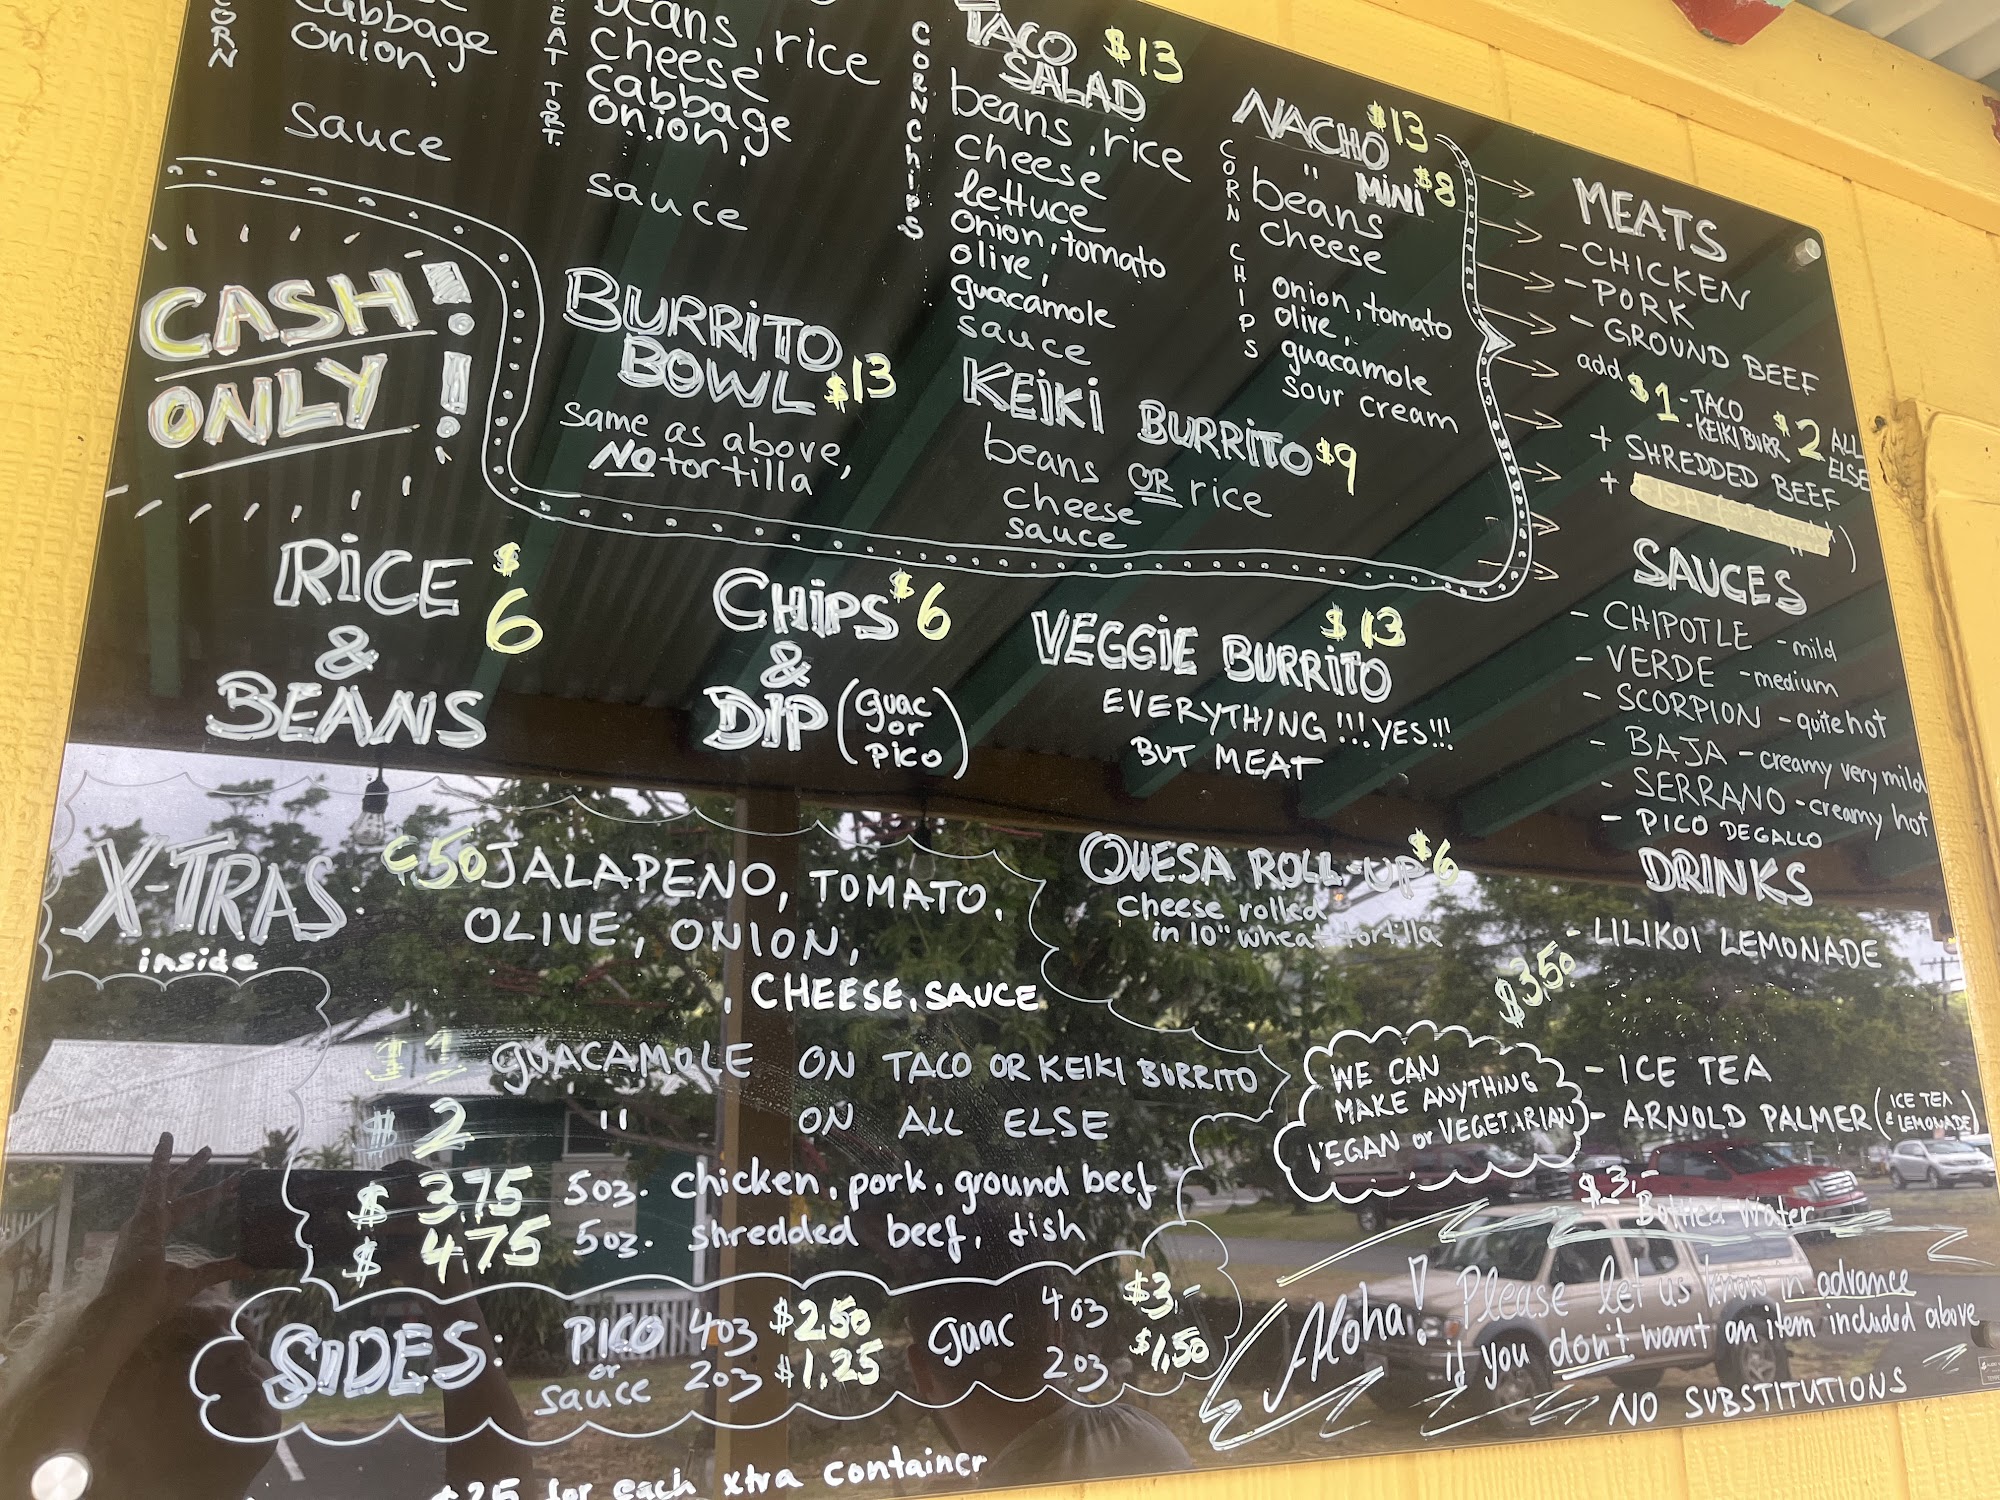 CORN
cabbage
onion
sauce
beans, rice
cheese
cabbage
onion,
sauce
TORT.
CORN CHIPS
TACO $13
SALAD
beans, rice
cheese
lettuce
onion, tomato
olive,
guacamole
sauce
NACHO $13
" MINI $8
CORN CHIPS
beans
cheese
onion, tomato
olive,
guacamole
sour cream
CASH!
ONLY!
BURRITO
BOWL $13
same as above,
NO tortilla
KEIKI BURRITO $9
beans OR rice
cheese
sauce
MEATS
- CHICKEN
- PORK
- GROUND BEEF
add $1 - TACO
- KEIKI BURR.
$2 ALL
ELSE
+ SHREDDED BEEF
+
RICE $6
&
BEANS
CHIPS $6
&
DIP (guac
or
PICO)
VEGGIE BURRITO $13
EVERYTHING!!! YES!!!
BUT MEAT
SAUCES
- CHIPOTLE - mild
- VERDE - medium
- SCORPION - quite hot
- BAJA - creamy very mild
- SERRANO - creamy hot
- PICO DEGALLO
X-TRAS:
inside
¢50 JALAPENO, TOMATO,
OLIVE, ONION,
, CHEESE, SAUCE
$1 GUACAMOLE ON TACO OR KEIKI BURRITO
$2 " ON ALL ELSE
$3.75 5oz. chicken, pork, ground beef
$4.75 5oz. shredded beef, fish
QUESA ROLL-UP $6
cheese rolled
in 10" wheat tortilla
DRINKS
- LILIKOI LEMONADE
$3,50
- ICE TEA
- ARNOLD PALMER (ICE TEA
& LEMONADE)
$3,-
Bottled Water
WE CAN
MAKE ANYTHING
VEGAN or VEGETARIAN
SIDES:
PICO 4oz $2.50
or
sauce 2oz $1.25
guac 4oz $3,-
2oz $1,50
Aloha! Please let us know in advance
if you don't want an item included above
NO SUBSTITUTIONS
for each xtra container